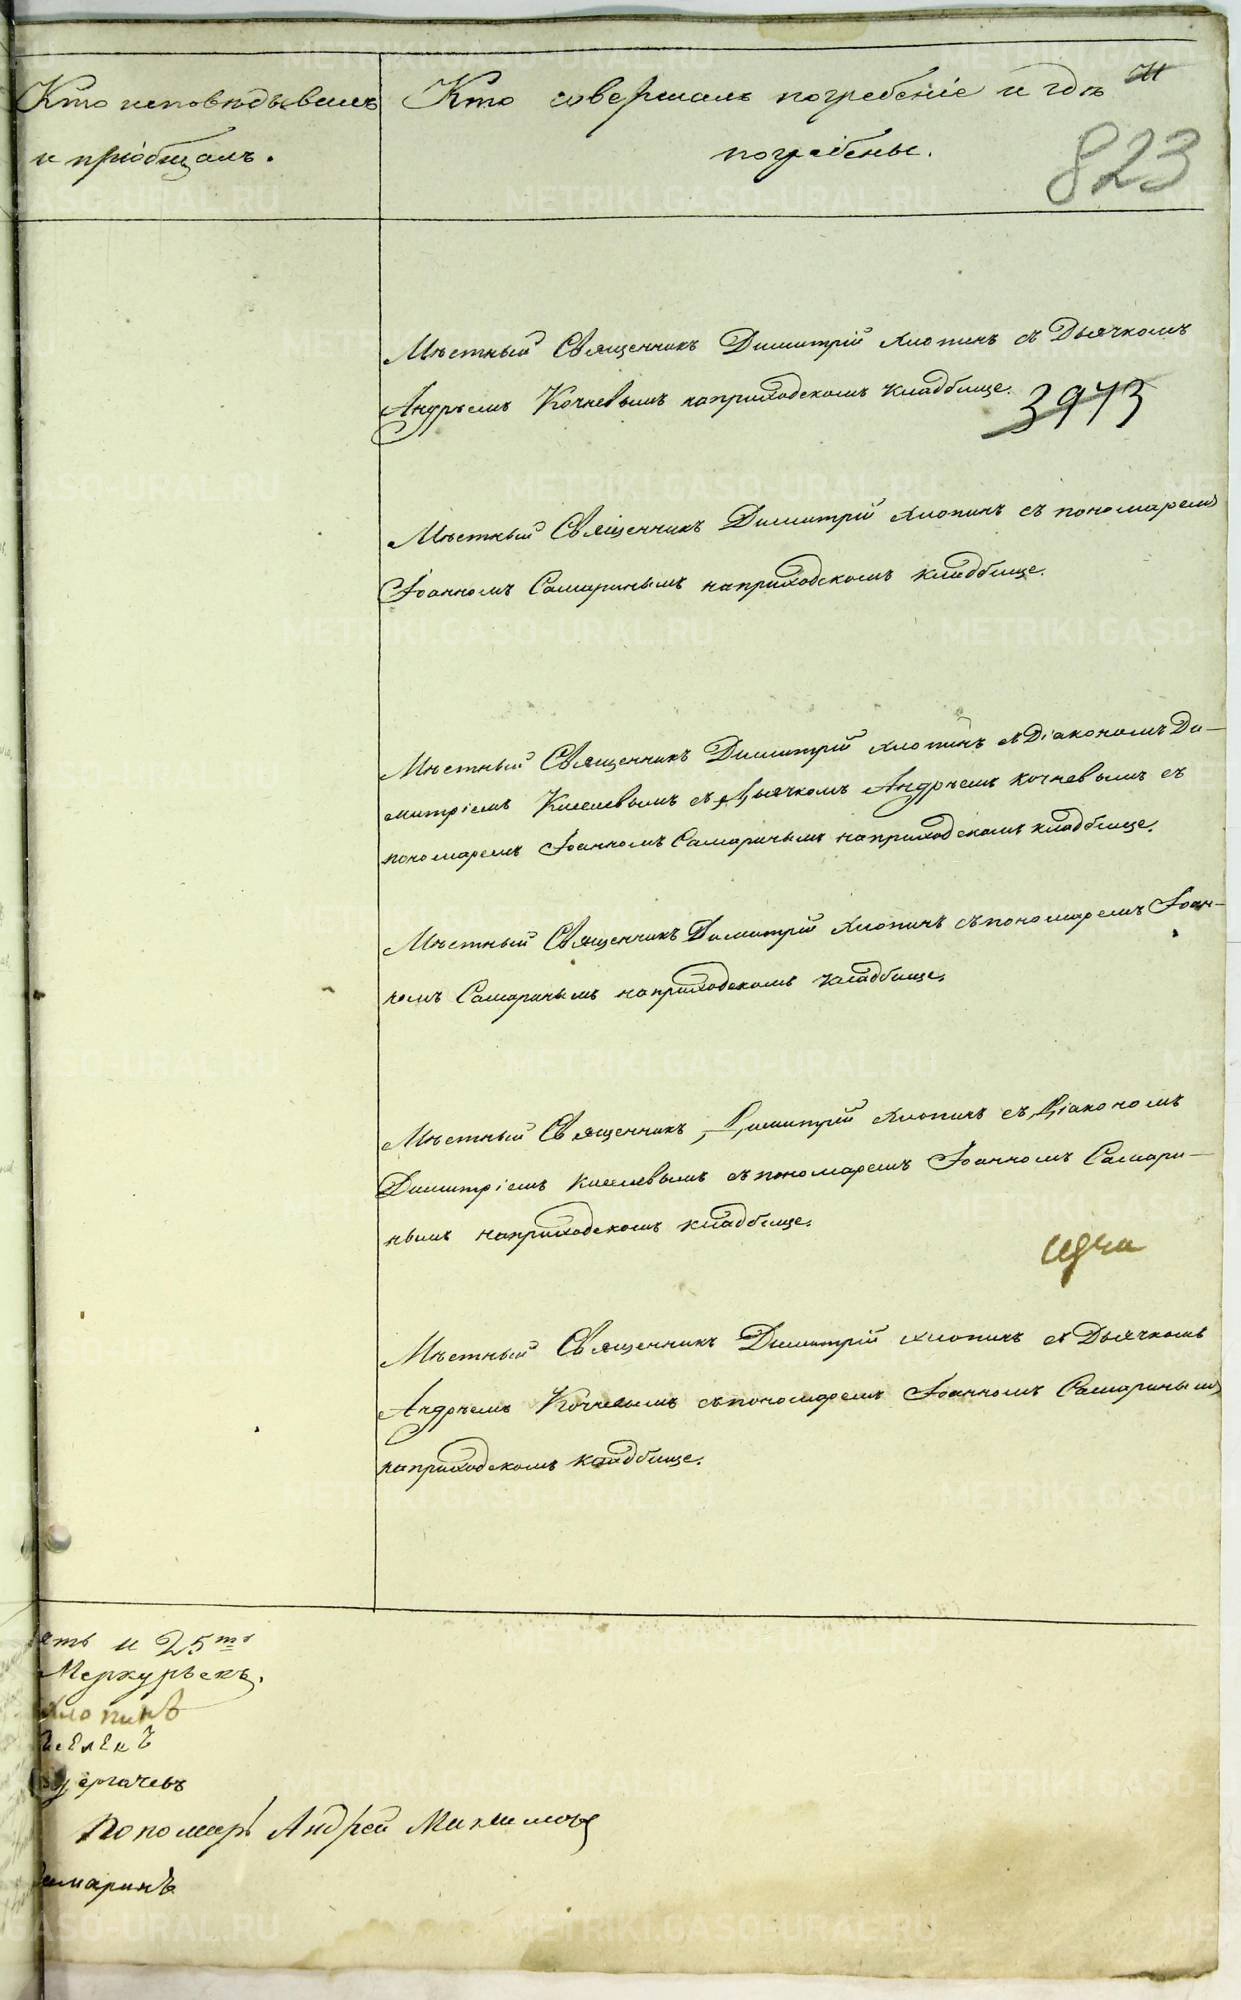 Кто исповѣдывалъ
и пріобщалъ.
Кто совершалъ погребеніе и гдѣ
погребены.
823
Мѣстный Священникъ Димитрій Хлопинъ съ Дьячкомъ
Андрѣемъ Кочневымъ наприходскомъ кладбище.
3973
Мѣстный Священникъ Димитрій Хлопинъ съ пономаремъ
Іоанномъ Самаринымъ наприходскомъ кладбище.
Мѣстный Священникъ Димитрій Хлопинъ съ Діакономъ Ди-
митріемъ Киселевымъ съ Дьячкомъ Андрѣемъ Кочневымъ съ
пономаремъ Іоанномъ Самаринымъ наприходскомъ кладбище.
Мѣстный Священникъ Димитрій Хлопинъ съ пономаремъ Іоан-
номъ Самаринымъ наприходскомъ кладбище.
Мѣстный Священникъ Димитрій Хлопинъ съ Діакономъ
Димитріемъ Киселевымъ съ пономаремъ Іоанномъ Самари-
нымъ наприходскомъ кладбище.
Мѣстный Священникъ Димитрій Хлопинъ съ Дьячкомъ
Андрѣемъ Кочневымъ съ пономаремъ Іоанномъ Самаринымъ
наприходскомъ кладбище.
ять и 25тъ
Меркурьевъ.
Хлопинъ
Пономарь Андрей
амаринъ
METRIKI.GASO-URAL.RU